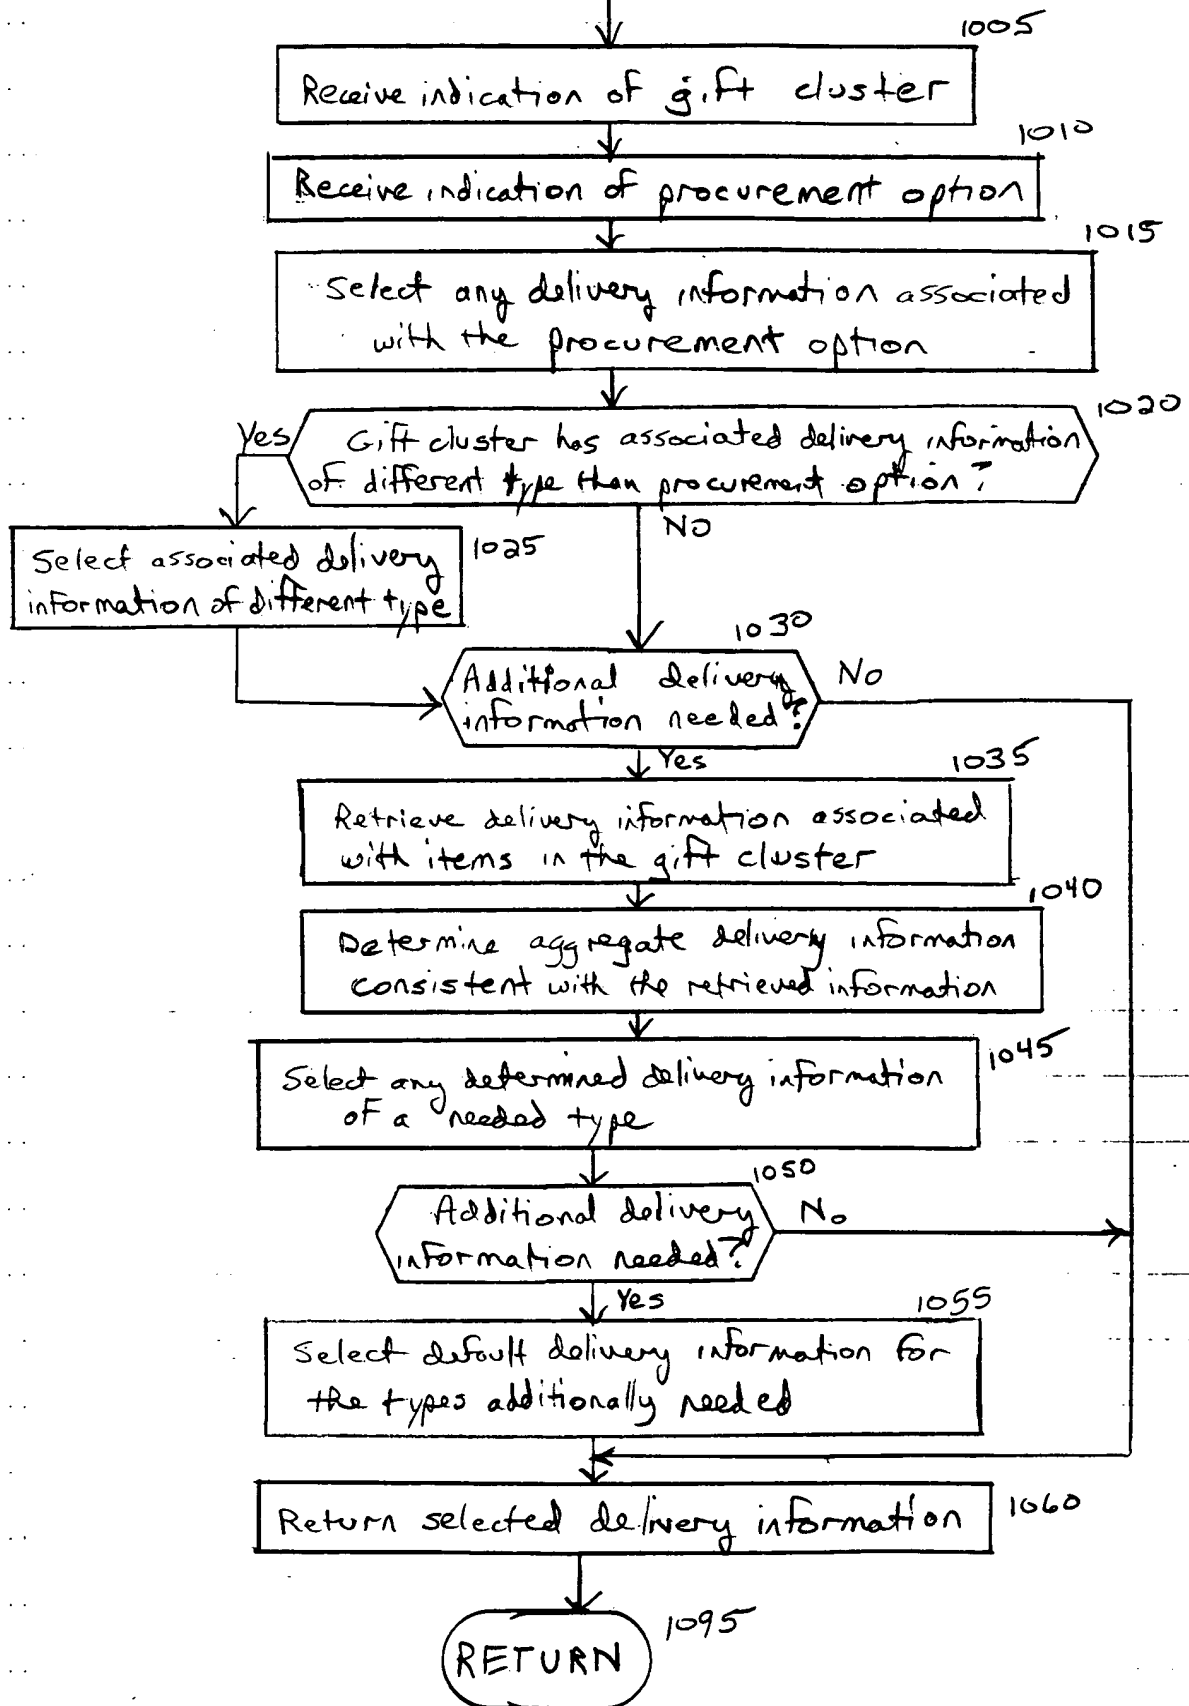 1005
Receive indication of gift cluster
1010
Receive indication of procurement option
1015
Select any delivery information associated
with the procurement option
1020
Yes
Gift cluster has associated delivery information
of different type than procurement option?
NO
1025
Select associated delivery
information of different type
1030
Additional delivery
information needed?
No
Yes
1035
Retrieve delivery information associated
with items in the gift cluster
1040
Determine aggregate delivery information
consistent with the retrieved information
1045
Select any determined delivery information
of a needed type
1050
Additional delivery
information needed?
No
Yes
1055
Select default delivery information for
the types additionally needed
Return selected delivery information
1060
1095
RETURN